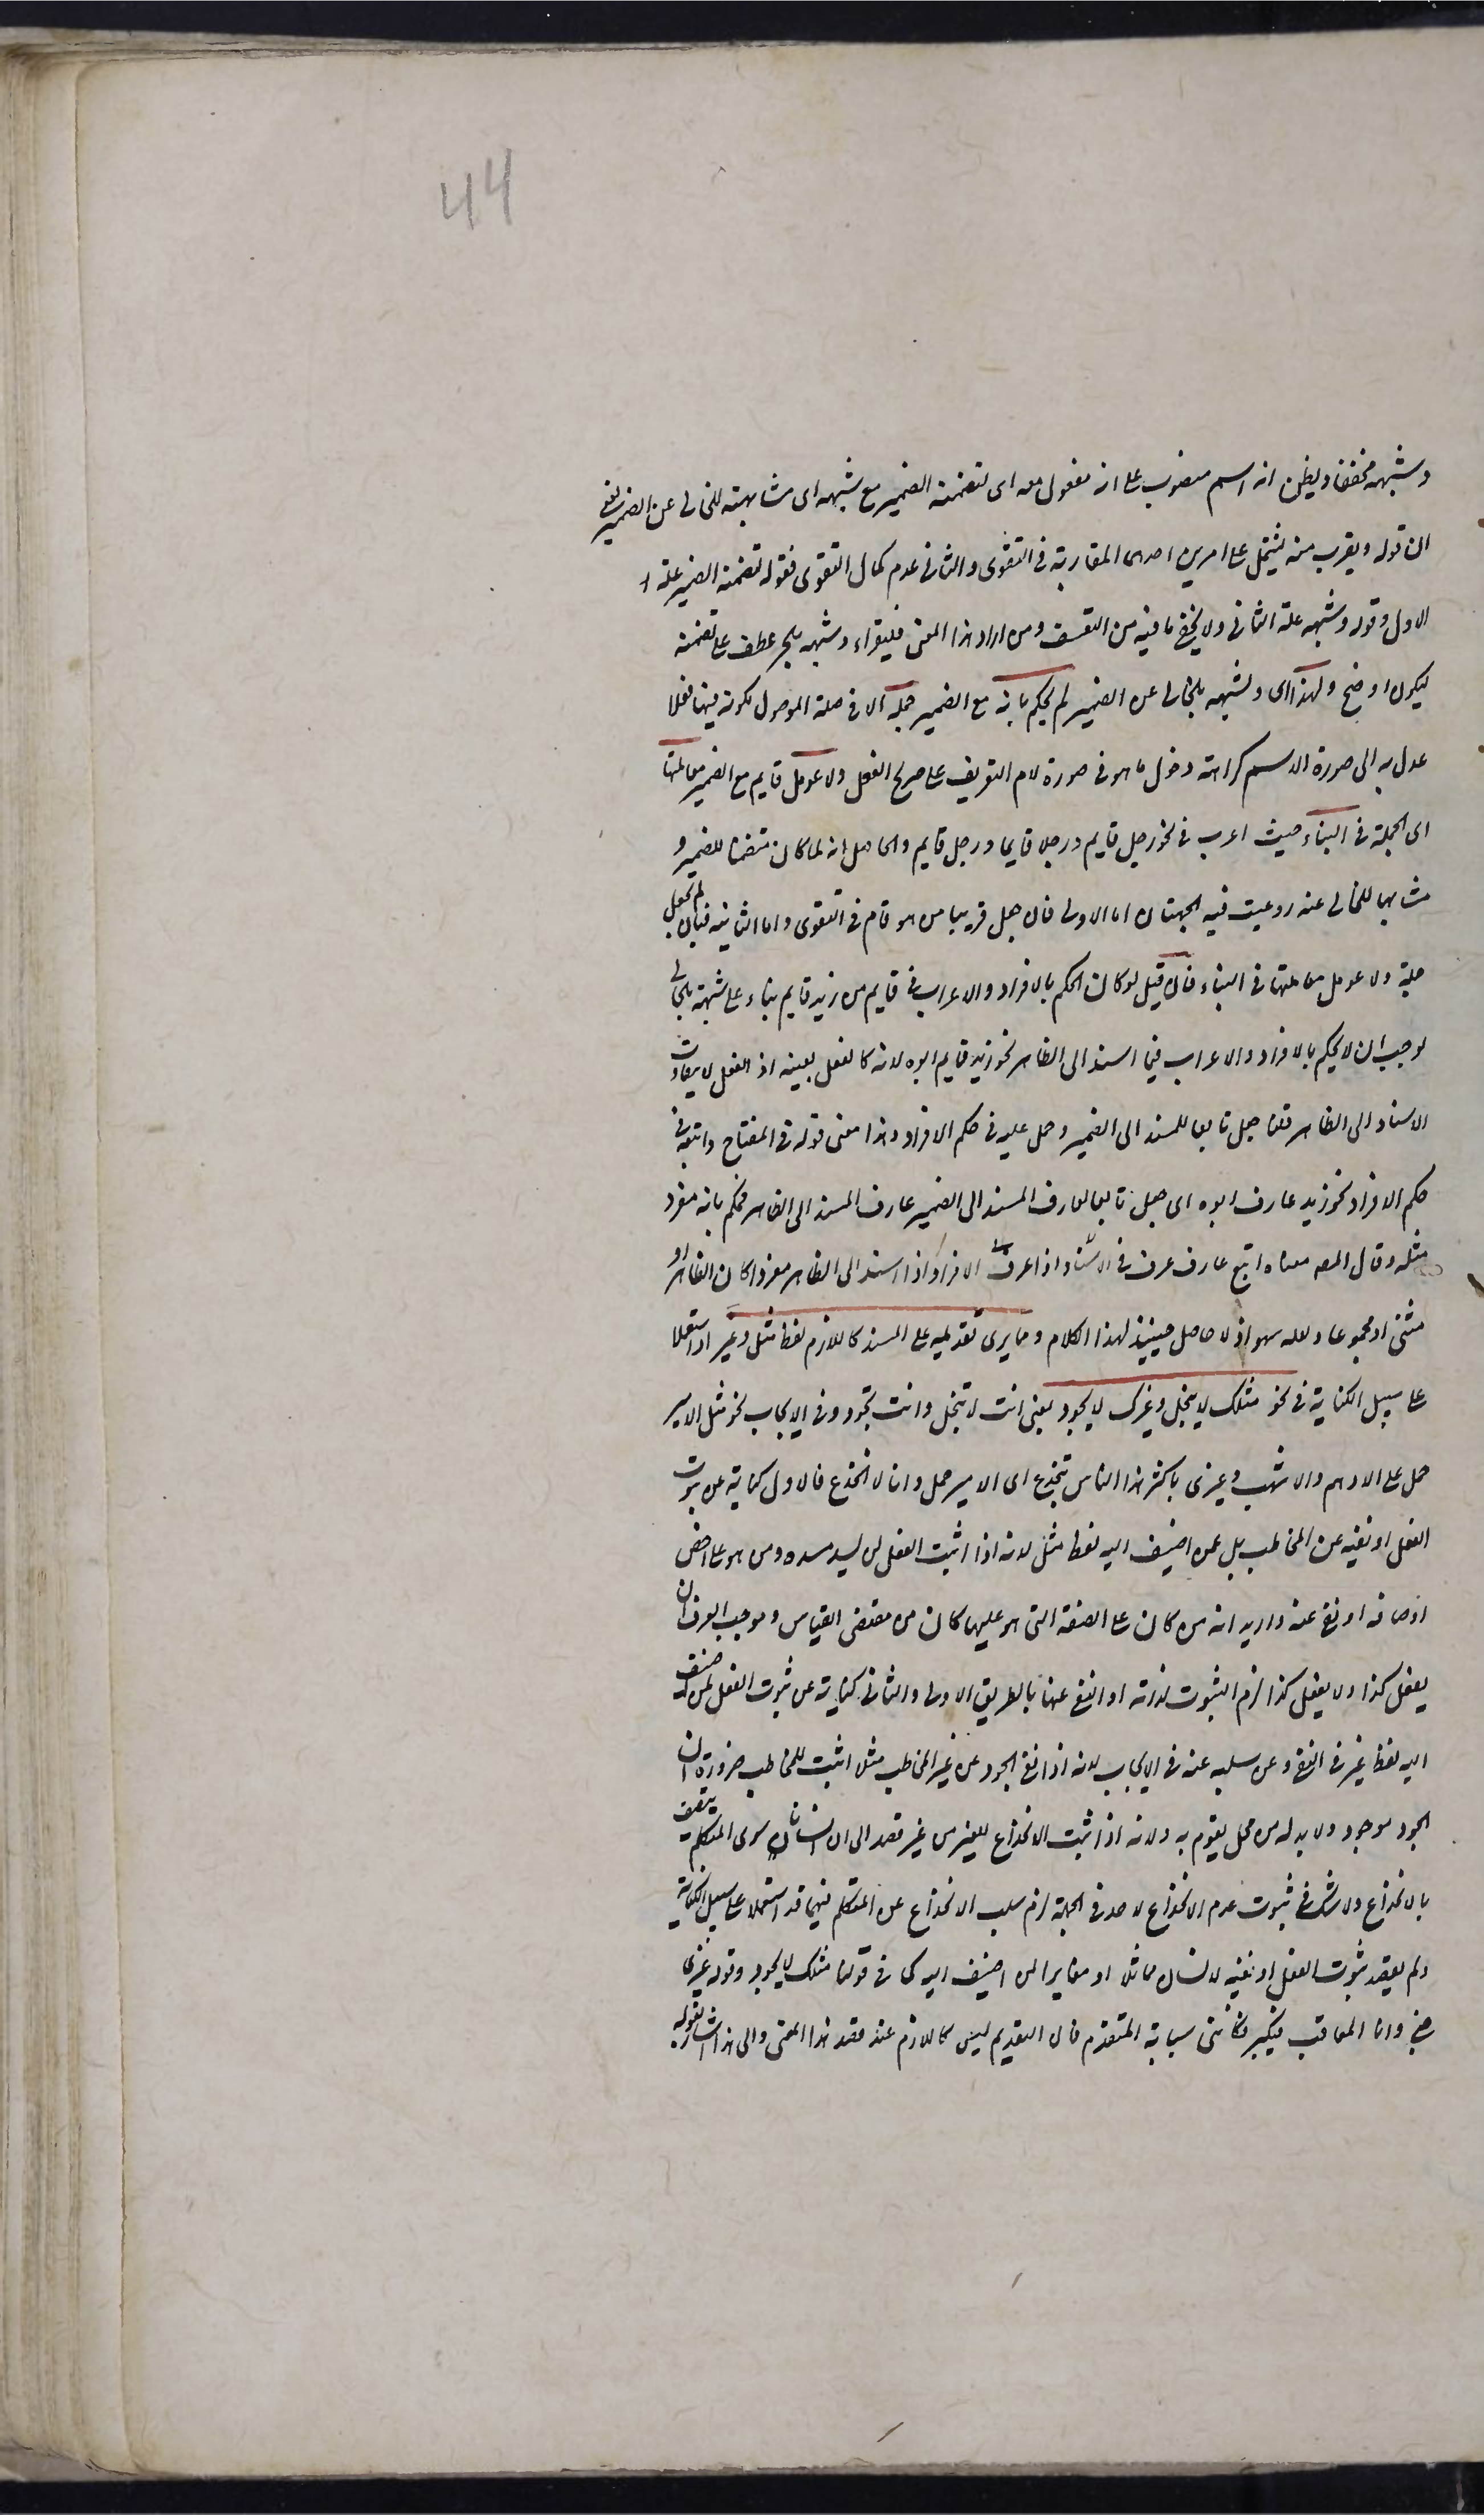 44
وشبهه مخففا ويظن انه اسم منصوب على انه مفعول معه اى لتضمنه الضمير مع شبهه اى مشابهته للخالى عن الضمير يعنى
ان قوله ويقرب منه يشتمل على امرين احدهما المقاربة فى التقوى والثانى عدم كمال التقوى فقوله لتضمنه الضمير علة
الاول وقوله وشبهه علة الثانى ولا يخفى ما فيه من التعسف ومن اراد هذا المعنى فليقراء وشبهه بالجر عطف على تضمنه
ليكون اوضح ولهذا اى ولشبهه بالخالى عن الضمير لم يحكم بانه مع الضمير جملة الا فى صلة الموصول لكونه فيها فعلا
عدل به الى صورة الاسم كراهة دخول ما هو فى صورة لام التعريف على صريح الفعل ولا عومل قايم مع الضمير معاملتها
اى الجملة فى البناء حيث اعرب فى نحو رجل قايم ورجلا قايما ورجل قايم والحاصل انه لما كان متضمنا للضمير و
مشابها للخالى عنه روعيت فيه الجهتان اما الاولى فان جعل قريبا من هو قام فى التقوى واما الثانية فبان لم يجعل
جملة ولا عومل معاملتها فى البناء فان قيل لو كان الحكم بالافراد والاعراب فى قايم من زيد قايم بناء على شبهه بالخالى
لوجب ان لا يحكم بالافراد والاعراب فيما اسند الى الظاهر نحو زيد قايم ابوه لانه كالفعل بعينه اذ الفعل لا يتفاوت
الاسناد الى الظاهر قلنا جعل تابعا للمسند الى الضمير وحمل عليه فى حكم الافراد وهذا معنى قوله فى المفتاح واتبعه فى
حكم الافراد نحو زيد عارف ابوه اى جعل تابعا لعارف المسند الى الضمير عارف المسند الى الظاهر فحكم بانه مفرد
مثله وقال المصه معناه اتبع عارف عرف فى الاسناد اذا عرف فى الافراد اذا اسند الى الظاهر مفردا كان الظاهر او
مثنى او مجموعا ولعله سهو اذ لا حاصل حينئذ لهذا الكلام ومما يرى تقديمه على المسند كاللازم لفظ مثل وغير اذا استعملا
على سبيل الكناية فى نحو مثلك لا يبخل وغيرك لا يجود بمعنى انت لا تبخل وانت تجود وفى الايجاب نحو مثل الامير
حمل على الادهم والاشهب وغيرى باكثر هذا الناس ينخدع اى الامير حمل وانا لا انخدع فالاول كناية عن ثبوت
الفعل او نفيه عن المخاطب بل عمن اضيف اليه لفظ مثل لانه اذا اثبت الفعل لمن يسد مسده ومن هو على اخص
اوصافه او نفى عنه واريد انه من كان على الصفة التى هو عليها كان من مقتضى القياس وموجب العرف ان
يفعل كذا ولا يفعل كذا لزم الثبوت لذاته او النفى عنها بالطريق الاولى والثانى كناية عن ثبوت الفعل لمن اضيف
اليه لفظ غير فى النفى وعن سلبه عنه فى الايجاب لانه اذا نفى الجود عن غير المخاطب مثلا اثبت للمخاطب ضرورة ان
الجود موجود ولا بد له من محل يقوم به ولانه اذا ثبت الانخداع للغير من غير قصد الى ان انسانا سوى المتكلم يتصف
بالانخداع ولا شك فى ثبوت عدم الانخداع لاحد فى الجملة لزم سلب الانخداع عن المتكلم فهما قد استعملا على سبيل الكناية
ولم يقصد ثبوت الفعل او نفيه لانسان مماثل او مغاير لمن اضيف اليه كما فى قولنا مثلك لا يجود وقوله غيرى
جنى وانا المعاقب فيكم فكاننى سبابة المتندم فان التقديم ليس كاللازم عند قصد هذا المعنى والى هذا اشار بقوله